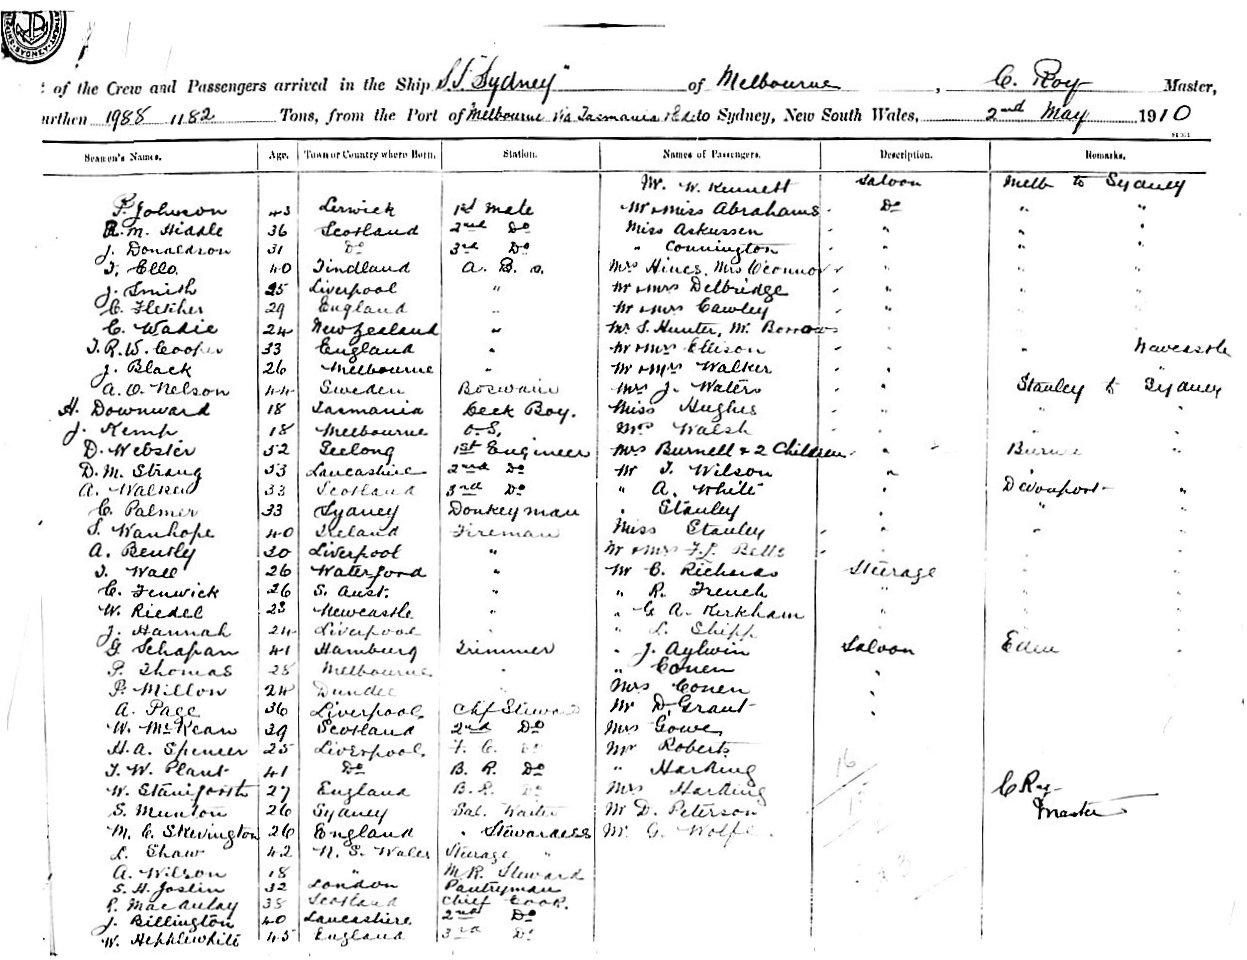 of the Crew and Passengers arrived in the Ship S.S. "Sydney" of Melbourne, C. Roy Master,
urthen 1988 1182 Tons, from the Port of Melbourne via Tasmania & Eden to Sydney, New South Wales, 2nd May 1910
Seamen's Names. Age. Town or Country where Born. Station. Names of Passengers. Description. Remarks.
Mr. W. Kennett Saloon Melb to Sydney
P. Johnson 43 Lerwick 1st Mate Mr & Miss Abrahams " Do " "
R. M. Hiddle 36 Scotland 2nd Do Miss Askussen " " "
J. Donaldson 31 Do 3rd Do " Connington " " "
T. Ello 40 Findland A. B. s. Mrs Hines, Mrs O'Connor " " "
J. Smith 25 Liverpool " Mr & Mrs Delbridge " " "
C. Fletcher 29 England " Mr & Mrs Cawley " " "
C. Wadie 24 New Zealand " Mr S. Hunter, Mr. Borrows " " "
T. R. W. Cooper 33 England " Mr & Mrs Ellison " " Newcastle
J. Black 26 Melbourne " Mr & Mrs Walker " "
A. O. Nelson 44 Sweden Boswain Mrs J. Waters " Stanley to Sydney
H. Downward 18 Tasmania Deck Boy. Miss Hughes " " "
J. Kemp 18 Melbourne O.S. Mrs Walsh " " "
D. Webster 52 Geelong 1st Engineer Mrs Burnell & 2 Children " Burnie "
D. M. Strang 33 Lancashire 2nd Do Mr T. Wilson "
A. Walker 33 Scotland 3rd Do " A. White " Devonport "
C. Palmer 33 Sydney Donkeyman " Stanley " " "
S. Wanhope 40 Ireland Fireman Miss Stanley " " "
A. Bently 30 Liverpool " Mr & Mrs F. J. Betts " " "
T. Wall 26 Waterford " Mr C. Richards Steerage " "
C. Fenwick 26 S. Aust. " " R. French " " "
W. Riedel 23 Newcastle " " G A. Kirkham " " "
J. Hannah 24 Liverpool " " L. Shipp " " "
G. Schapan 41 Hamburg Trimmer " J. Aylwin Saloon Eden "
P. Thomas 28 Melbourne " " Conen "
P. Millon 24 Dundee " Mrs Conen "
A. Pace 36 Liverpool Chf Steward Mr D. Grant "
W. McKean 39 Scotland 2nd Do Mrs Gowe
H. A. Spencer 25 Liverpool F. C. Do Mr Roberts
T. W. Plant 41 Do B. R. Do " Harding
W. Staniforth 27 England B. R. Do Mrs Harding C Roy
S. Munton 26 Sydney Sal. Waiter Mr D. Peterson Master
M. C. Skevington 26 England " Stewardess Mr. G. Wolfe
L. Shaw 42 N. S. Wales Steerage "
A. Wilson 18 " M. R. Steward
S. H. Joslin 32 London Pantryman
P. Macaulay 38 Scotland Chief Cook.
J. Billington 40 Lancashire 2nd Do
W. Hepplewhite 45 England 3rd Do